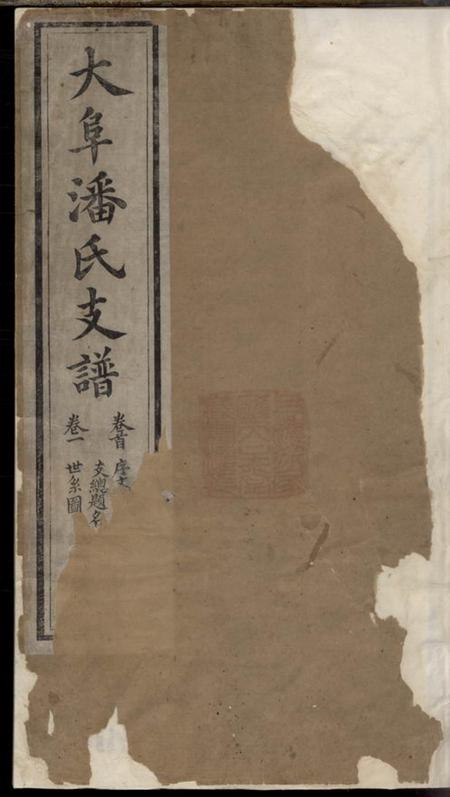 大阜潘氏支譜
卷首 序文
支總題名
卷一 世系圖